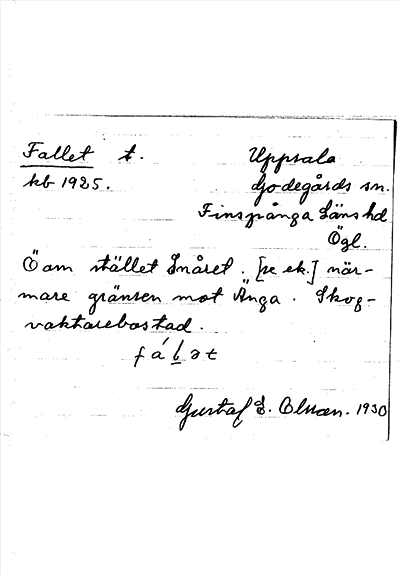 Fallet t. Uppsala
kb 1925. Godegårds sn.
Finspånga Läns hd
Ögl.
Ö om stället Snåret. [se ek.] när-
mare gränsen mot Änga. Skog-
vaktarebostad.
fálət
Gustaf E. Olsson. 1930